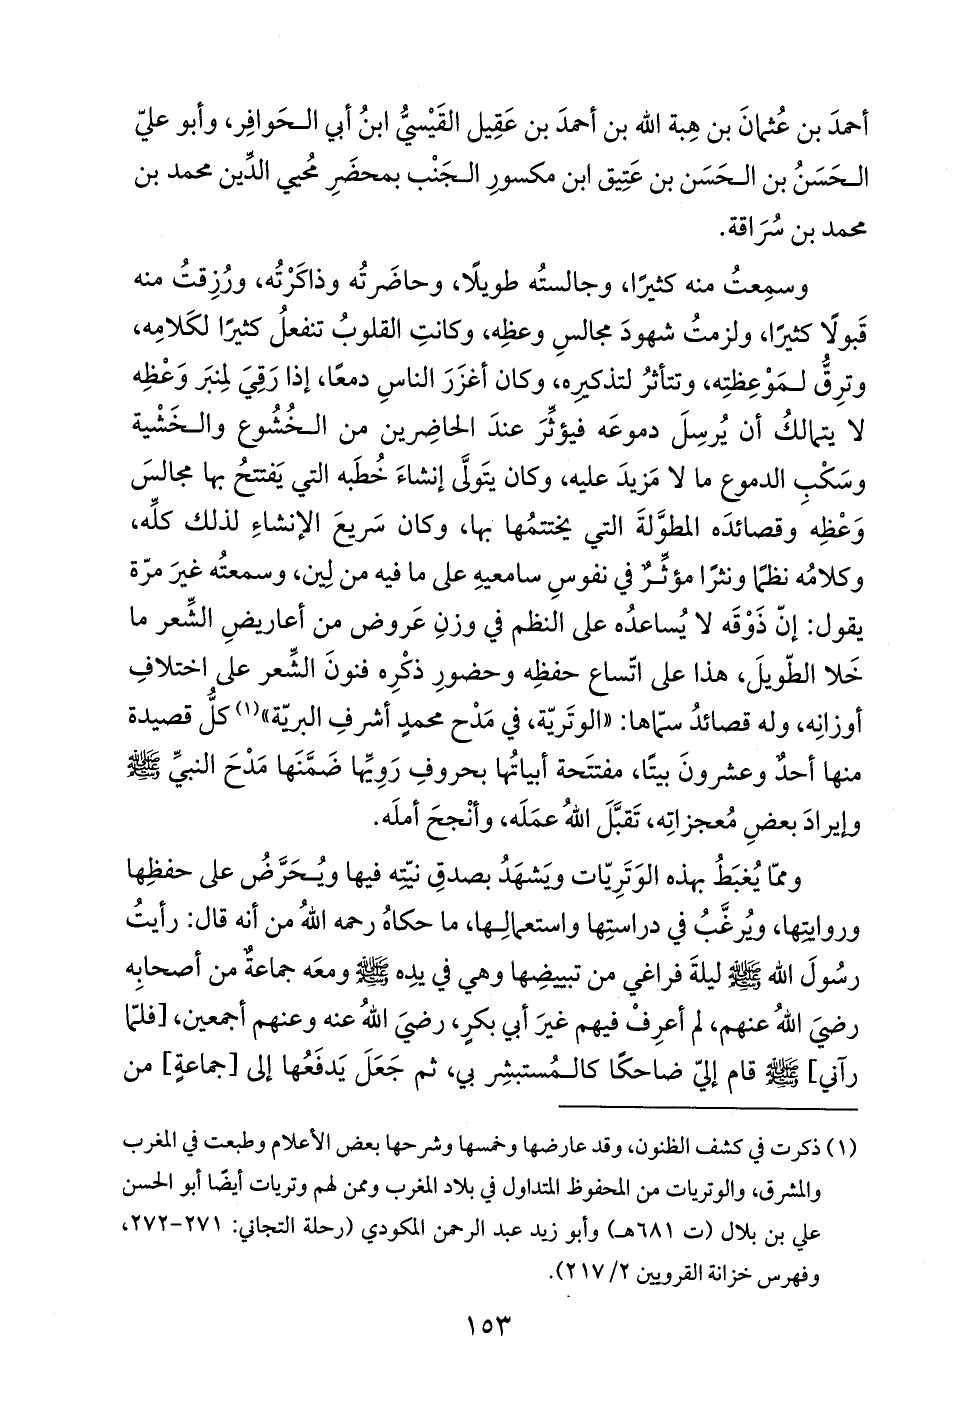 أحمدَ بن عُثمانَ بن هِبة الله بن أحمدَ بن عَقِيل القَيْسيُّ ابنُ أبي الـحَوافِر، وأبو عليّ
الـحَسَنُ بن الـحَسَن بن عَتِيق ابن مكسورِ الـجَنْب بمحضَرِ مُحيي الدِّين محمد بن
محمد بن سُرَاقة.
وسمِعتُ منه كثيرًا، وجالستُه طويلًا، وحاضَرتُه وذاكَرْتُه، ورُزِقتُ منه
قَبولًا كثيرًا، ولزمتُ شهودَ مجالسِ وعظِه، وكانتِ القلوبُ تنفعلُ كثيرًا لكَلامِه،
وترِقُّ لـمَوْعِظتِه، وتتأثرُ لتذكيرِه، وكان أغزَرَ الناسِ دمعًا، إذا رَقِيَ لمِنبَر وَعْظِه
لا يتمالكُ أن يُرسِلَ دموعَه فيؤثِّرَ عندَ الحاضِرين من الـخُشُوع والـخَشْية
وسَكْبِ الدموع ما لا مَزيدَ عليه، وكان يَتولَّى إنشاءَ خُطَبِه التي يَفتتحُ بها مجالسَ
وَعْظِه وقصائدَه المطوَّلةَ التي يختتمُها بها، وكان سَريعَ الإنشاءِ لذلك كلِّه،
وكلامُه نظمًا ونثرًا مؤثِّـرٌ في نفوسِ سامعيهِ على ما فيه من لِين، وسمعتُه غيرَ مرّة
يقول: إنّ ذَوْقَه لا يُساعدُه على النظم في وزنِ عَروض من أعاريضِ الشِّعر ما
خَلا الطّويلَ، هذا على اتّساع حفظِه وحضورِ ذكْرِه فنونَ الشِّعر على اختلافِ
أوزانِه، وله قصائدُ سمّاها: «الوتَريّة، في مَدْح محمدٍ أشرفِ البريّة»(١) كلُّ قصيدة
منها أحدٌ وعشرونَ بيتًا، مفتتَحة أبياتُها بحروفِ رَويِّها ضَمَّنَها مَدْحَ النبيِّ ﷺ
وإيرادَ بعضِ مُعجزاتِه، تَقبَّلَ اللهُ عمَلَه، وأنْجحَ أملَه.
وممّا يُغبَطُ بهذه الوَتَريّات ويَشهَدُ بصدقِ نيّتِه فيها ويُـحَرَّضُ على حفظِها
وروايتِها، ويُرغَّبُ في دراستِها واستعمالِـها، ما حكاهُ رحمه اللهُ من أنه قال: رأيتُ
رسُولَ الله ﷺ ليلةَ فراغي من تبييضِها وهي في يدِه ﷺ ومعَه جماعةٌ من أصحابِه
رضيَ اللهُ عنهم، لم أعرِفْ فيهم غيرَ أبي بكرٍ، رضيَ اللهُ عنه وعنهم أجمعين، [فلمّا
رآني] ﷺ قام إليّ ضاحكًا كالـمُستبشِر بي، ثم جَعَلَ يَدفَعُها إلى [جماعةٍ] من
(١) ذكرت في كشف الظنون، وقد عارضها وخمسها وشرحها بعض الأعلام وطبعت في المغرب
والمشرق، والوتريات من المحفوظ المتداول في بلاد المغرب وممن لهم وتريات أيضًا أبو الحسن
علي بن بلال (ت ٦٨١هـ) وأبو زيد عبد الرحمن المكودي (رحلة التجاني: ٢٧١-٢٧٢،
وفهرس خزانة القرويين ٢/ ٢١٧).
١٥٣